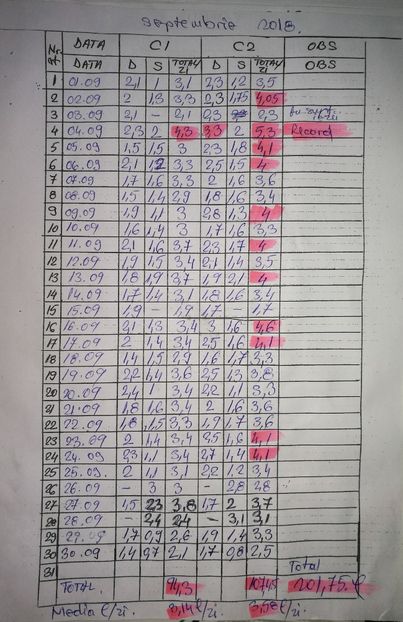 Septembrie 2018.
Nr. crt. DATA C1 C2 OBS
DATA D S TOTAL/ZI D S TOTAL/ZI OBS
1 01.09 2,1 1 3,1 2,3 1,2 3,5
2 02.09 2 1,3 3,3 2,3 1,75 4,05
3 03.09 2,1 - 2,1 2,3 2,3
4 04.09 2,3 2 4,3 3,3 2 5,3 Record
5 05.09 1,5 1,5 3 2,3 1,8 4,1
6 06.09 2,1 1,2 3,3 2,5 1,5 4
7 07.09 1,7 1,6 3,3 2 1,6 3,6
8 08.09 1,5 1,4 2,9 1,8 1,6 3,4
9 09.09 1,9 1,1 3 2,8 1,3 4
10 10.09 1,6 1,4 3 1,7 1,6 3,3
11 11.09 2,1 1,6 3,7 2,3 1,7 4
12 12.09 1,9 1,5 3,4 2,1 1,4 3,5
13 13.09 1,8 1,9 3,7 1,9 2,1 4
14 14.09 1,7 1,4 3,1 1,8 1,6 3,4
15 15.09 1,9 - 1,9 1,7 - 1,7
16 16.09 2,1 1,3 3,4 3 1,6 4,6
17 17.09 2 1,4 3,4 2,5 1,6 4,1
18 18.09 1,4 1,5 2,9 1,6 1,7 3,3
19 19.09 2,2 1,4 3,6 2,5 1,3 3,8
20 20.09 2,4 1 3,4 2,2 1,1 3,3
21 21.09 1,8 1,6 3,4 2 1,6 3,6
22 22.09 1,8 1,5 3,3 1,9 1,7 3,6
23 23.09 2 1,4 3,4 2,5 1,6 4,1
24 24.09 2,3 1,1 3,4 2,7 1,4 4,1
25 25.09. 2 1,1 3,1 2,2 1,2 3,4
26 26.09 - 3 3 - 2,8 2,8
27 27.09 1,5 2,3 3,8 1,7 2 3,7
28 28.09 - 2,4 2,4 - 3,1 3,1
29 29.09 1,7 0,9 2,6 1,9 1,4 3,3
30 30.09 1,4 0,7 2,1 1,7 0,8 2,5
31 Total
TOTAL. 94,3 107,45 201,75. l
Media l/zi. 3,14 l/zi 3,58 l/zi.